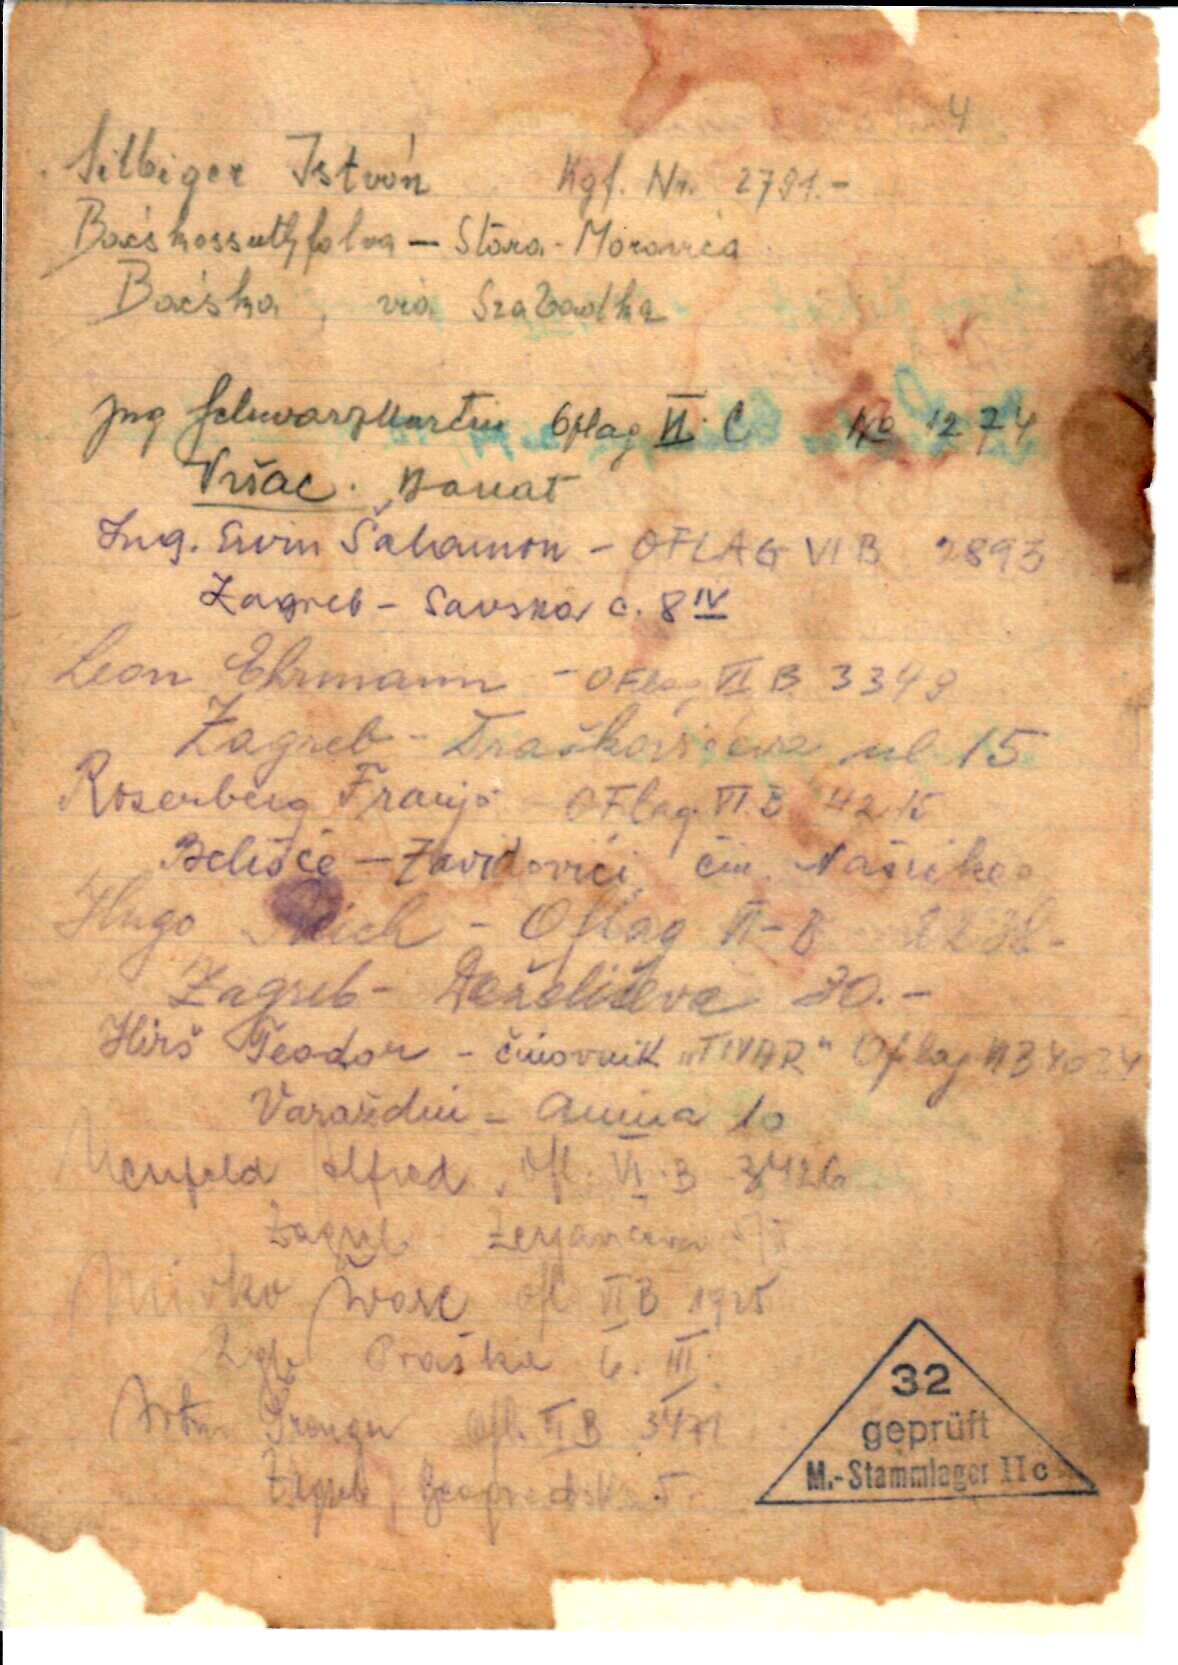 4
Silbiger István Kgf. Nr. 2791.-
Bácskossuthfalva — Stara-Moravica
Bačska, via Szabadka
Ing Schwarz Martin Oflag VI. C No 1274
Vršac. Banat
Ing. Ervin Šalamon - OFLAG VI B 2893
Zagreb - Savska c. 8 IV
Leon Ehrmann - OFlag VI B 3349
Zagreb - Draškovićeva ul 15
Rosenberg Franjo OFlag. VI. B
Belišće — Zavidovići čin. Našičke
Hugo - Oflag VI-B
Zagreb - Deželićeva 30.-
Hirš Teodor - činovnik „TIVAR" Oflag VI B 4024
Varaždin - 10
Neufeld Alfred, Ofl. VI. B 3426
Zagreb Žerjavićeva
Mirko Ofl VI B 1925
Zgb Praška 6. III.
Ofl. VI B 3471
Zagreb, 5.
32
geprüft
M.-Stammlager II c